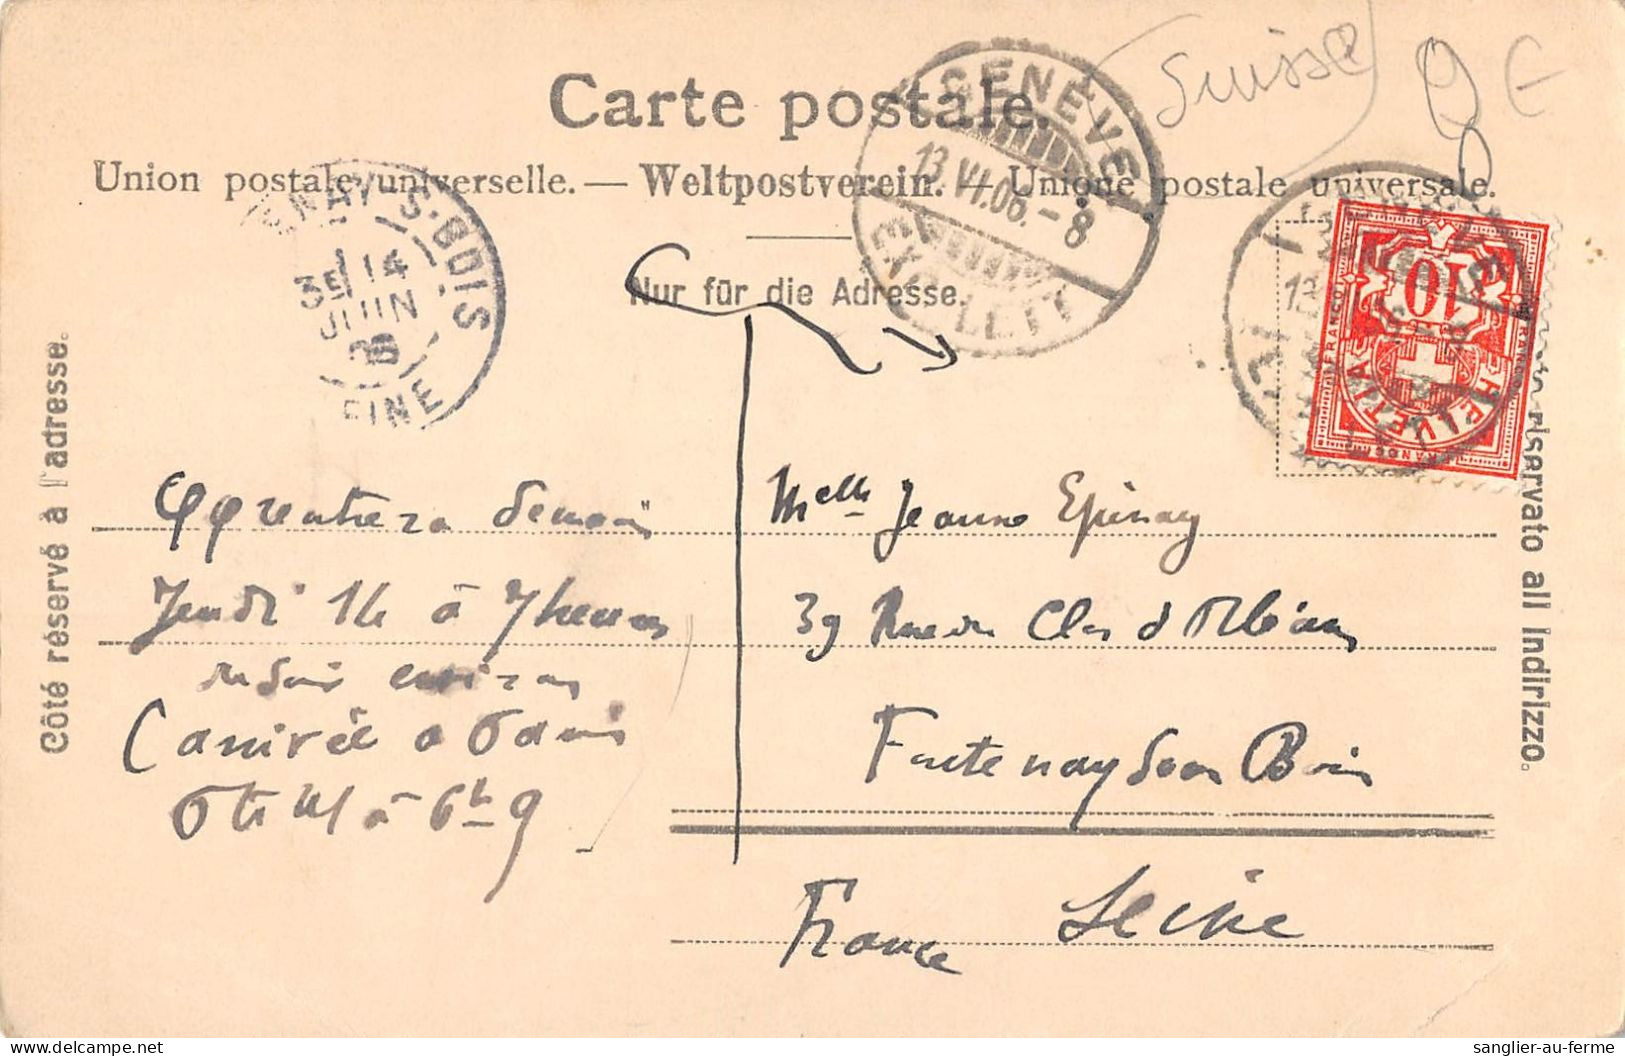 Suisse 9 E
Carte postale.
Union postale universelle. — Weltpostverein. — Unione postale universale.
Nur für die Adresse.
Côté réservé à l'adresse.
Lato riservato all indirizzo.
GENÈVE
13.VI.06.-8
EXP. LETT.
FONTENAY-S-BOIS
3E 14
JUIN
06
SEINE
10
FRANCO
HELVETIA
rentrera demain
Jeudi 14 à 7 heures
du soir environ
(arrivée a Paris
à 6h 9
Melle Jeanne Epinay
39 Rue du Clos d'Orléans
Fontenay sous Bois
Seine
France
sanglier-au-ferme